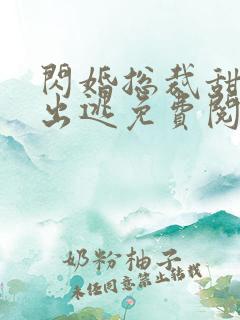 閃婚總裁甜
出逃免費閱
奶粉柚子
未经同意禁止转载